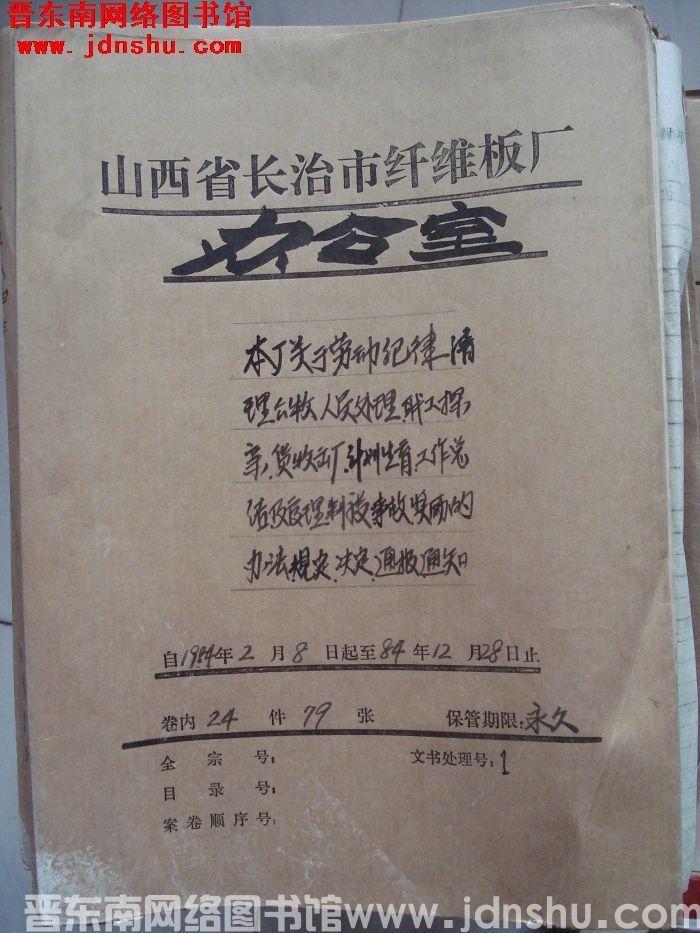 晋东南网络图书馆
www.jdnshu.com
山西省长治市纤维板厂
办公室
本厂关于劳动纪律清
理台牧人员处理、职工探
亲、货收出厂、计划生育、工作总
结及管理制设事故奖励的
办法、规定、决定、通报、通知
自1984年2月8日起至84年12月28日止
卷内24件79张 保管期限:永久
全宗号: 文书处理号:1
目录号:
案卷顺序号:
晋东南网络图书馆www.jdnshu.com